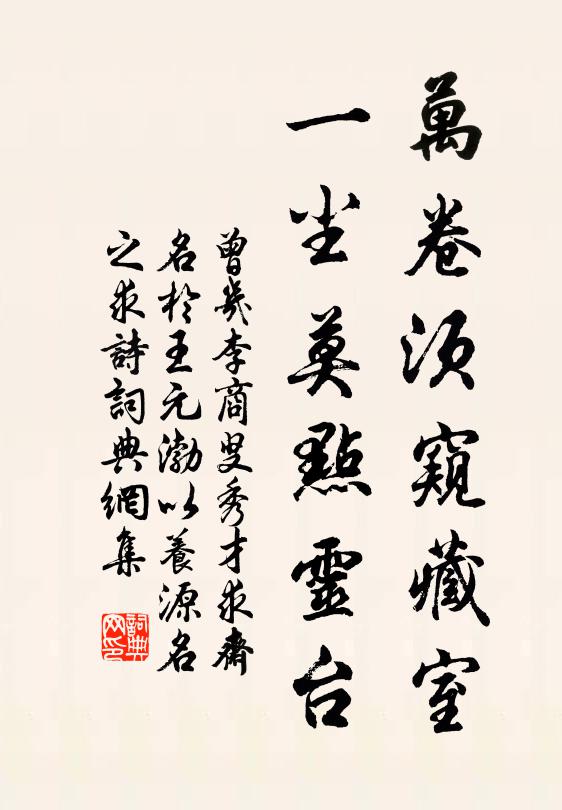 萬卷須窺藏室
一尘莫點靈台
曾幾李商叟秀才求齋
名於王元渤以養源名
之求詩詞典網集
詞典网印